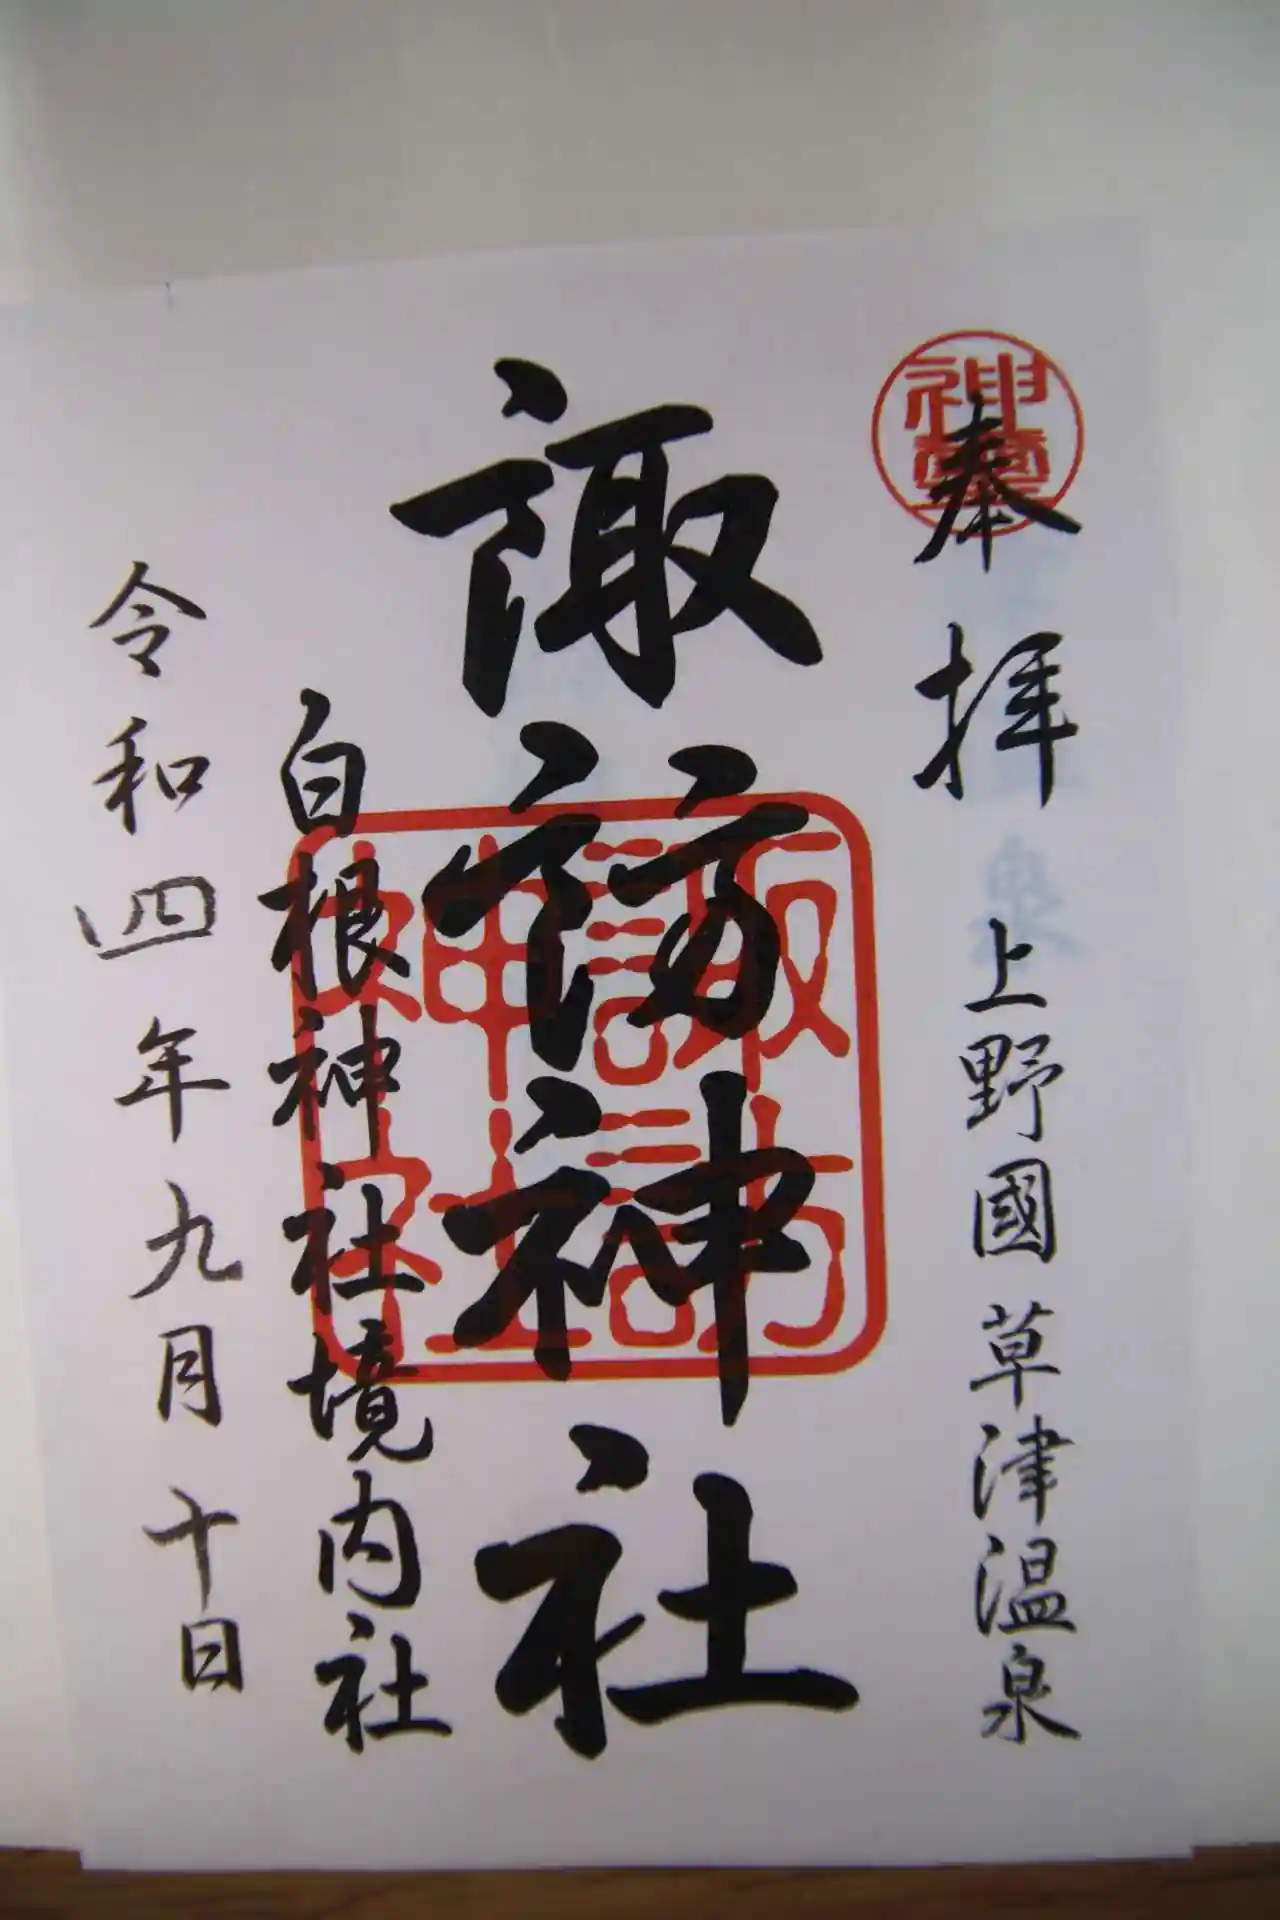 奉拝 上野國草津温泉
諏訪神社
白根神社境内社
令和四年九月十日
諏訪
神社